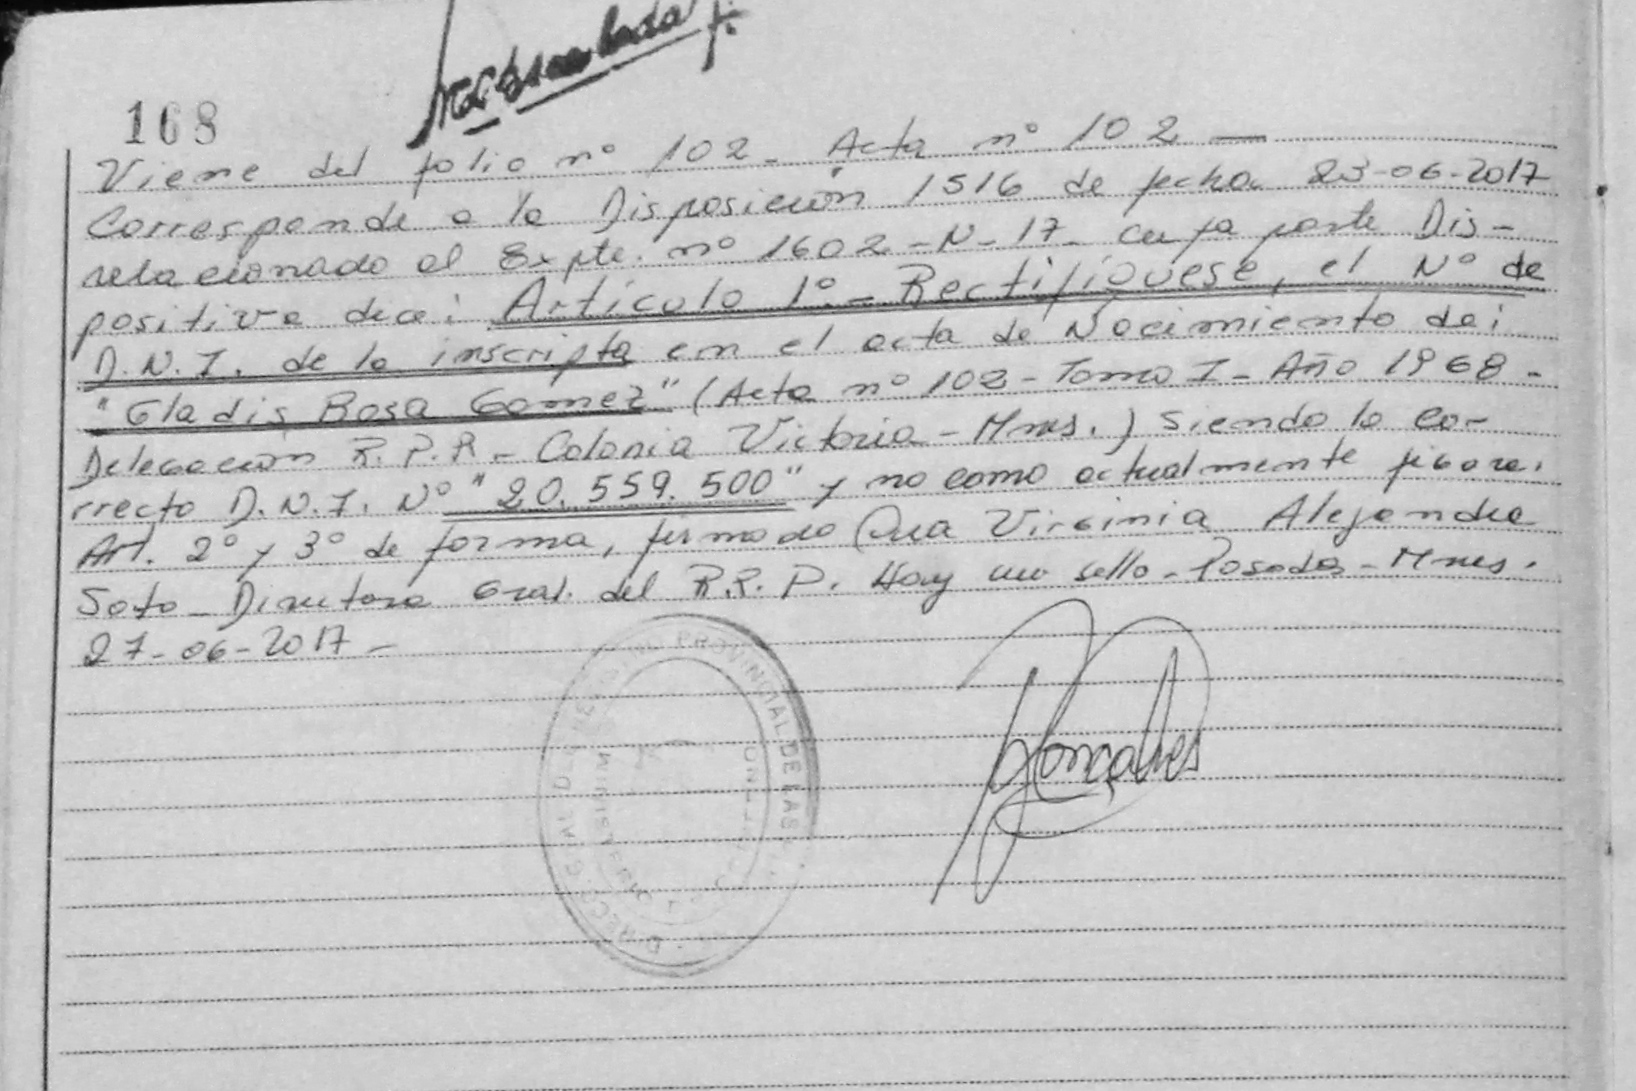 168
Viene del folio nº 102 - Acta nº 102 —
Corresponde a la Disposición 1516 de fecha 23-06-2017
relacionado al Expte. nº 1602-N-17- cuya parte Dis-
positiva dice: Artículo 1º.- Rectifíquese, el Nº de
D.N.I. de la inscripta en el acta de Nacimiento de:
"Gladis Rosa Gomez" (Acta nº 102 - Tomo I - Año 1968 -
Delegación R.P.P. - Colonia Victoria - Mnes.) siendo lo co-
rrecto D.N.I. Nº "20.559.500" y no como actualmente figura.
Art. 2º y 3º de forma, firmado Dra Virginia Alejandra
Soto - Directora Gral. del R.P.P. Hay un sello - Posadas - Mnes.
27-06-2017 -
PROVINCIAL DE LAS